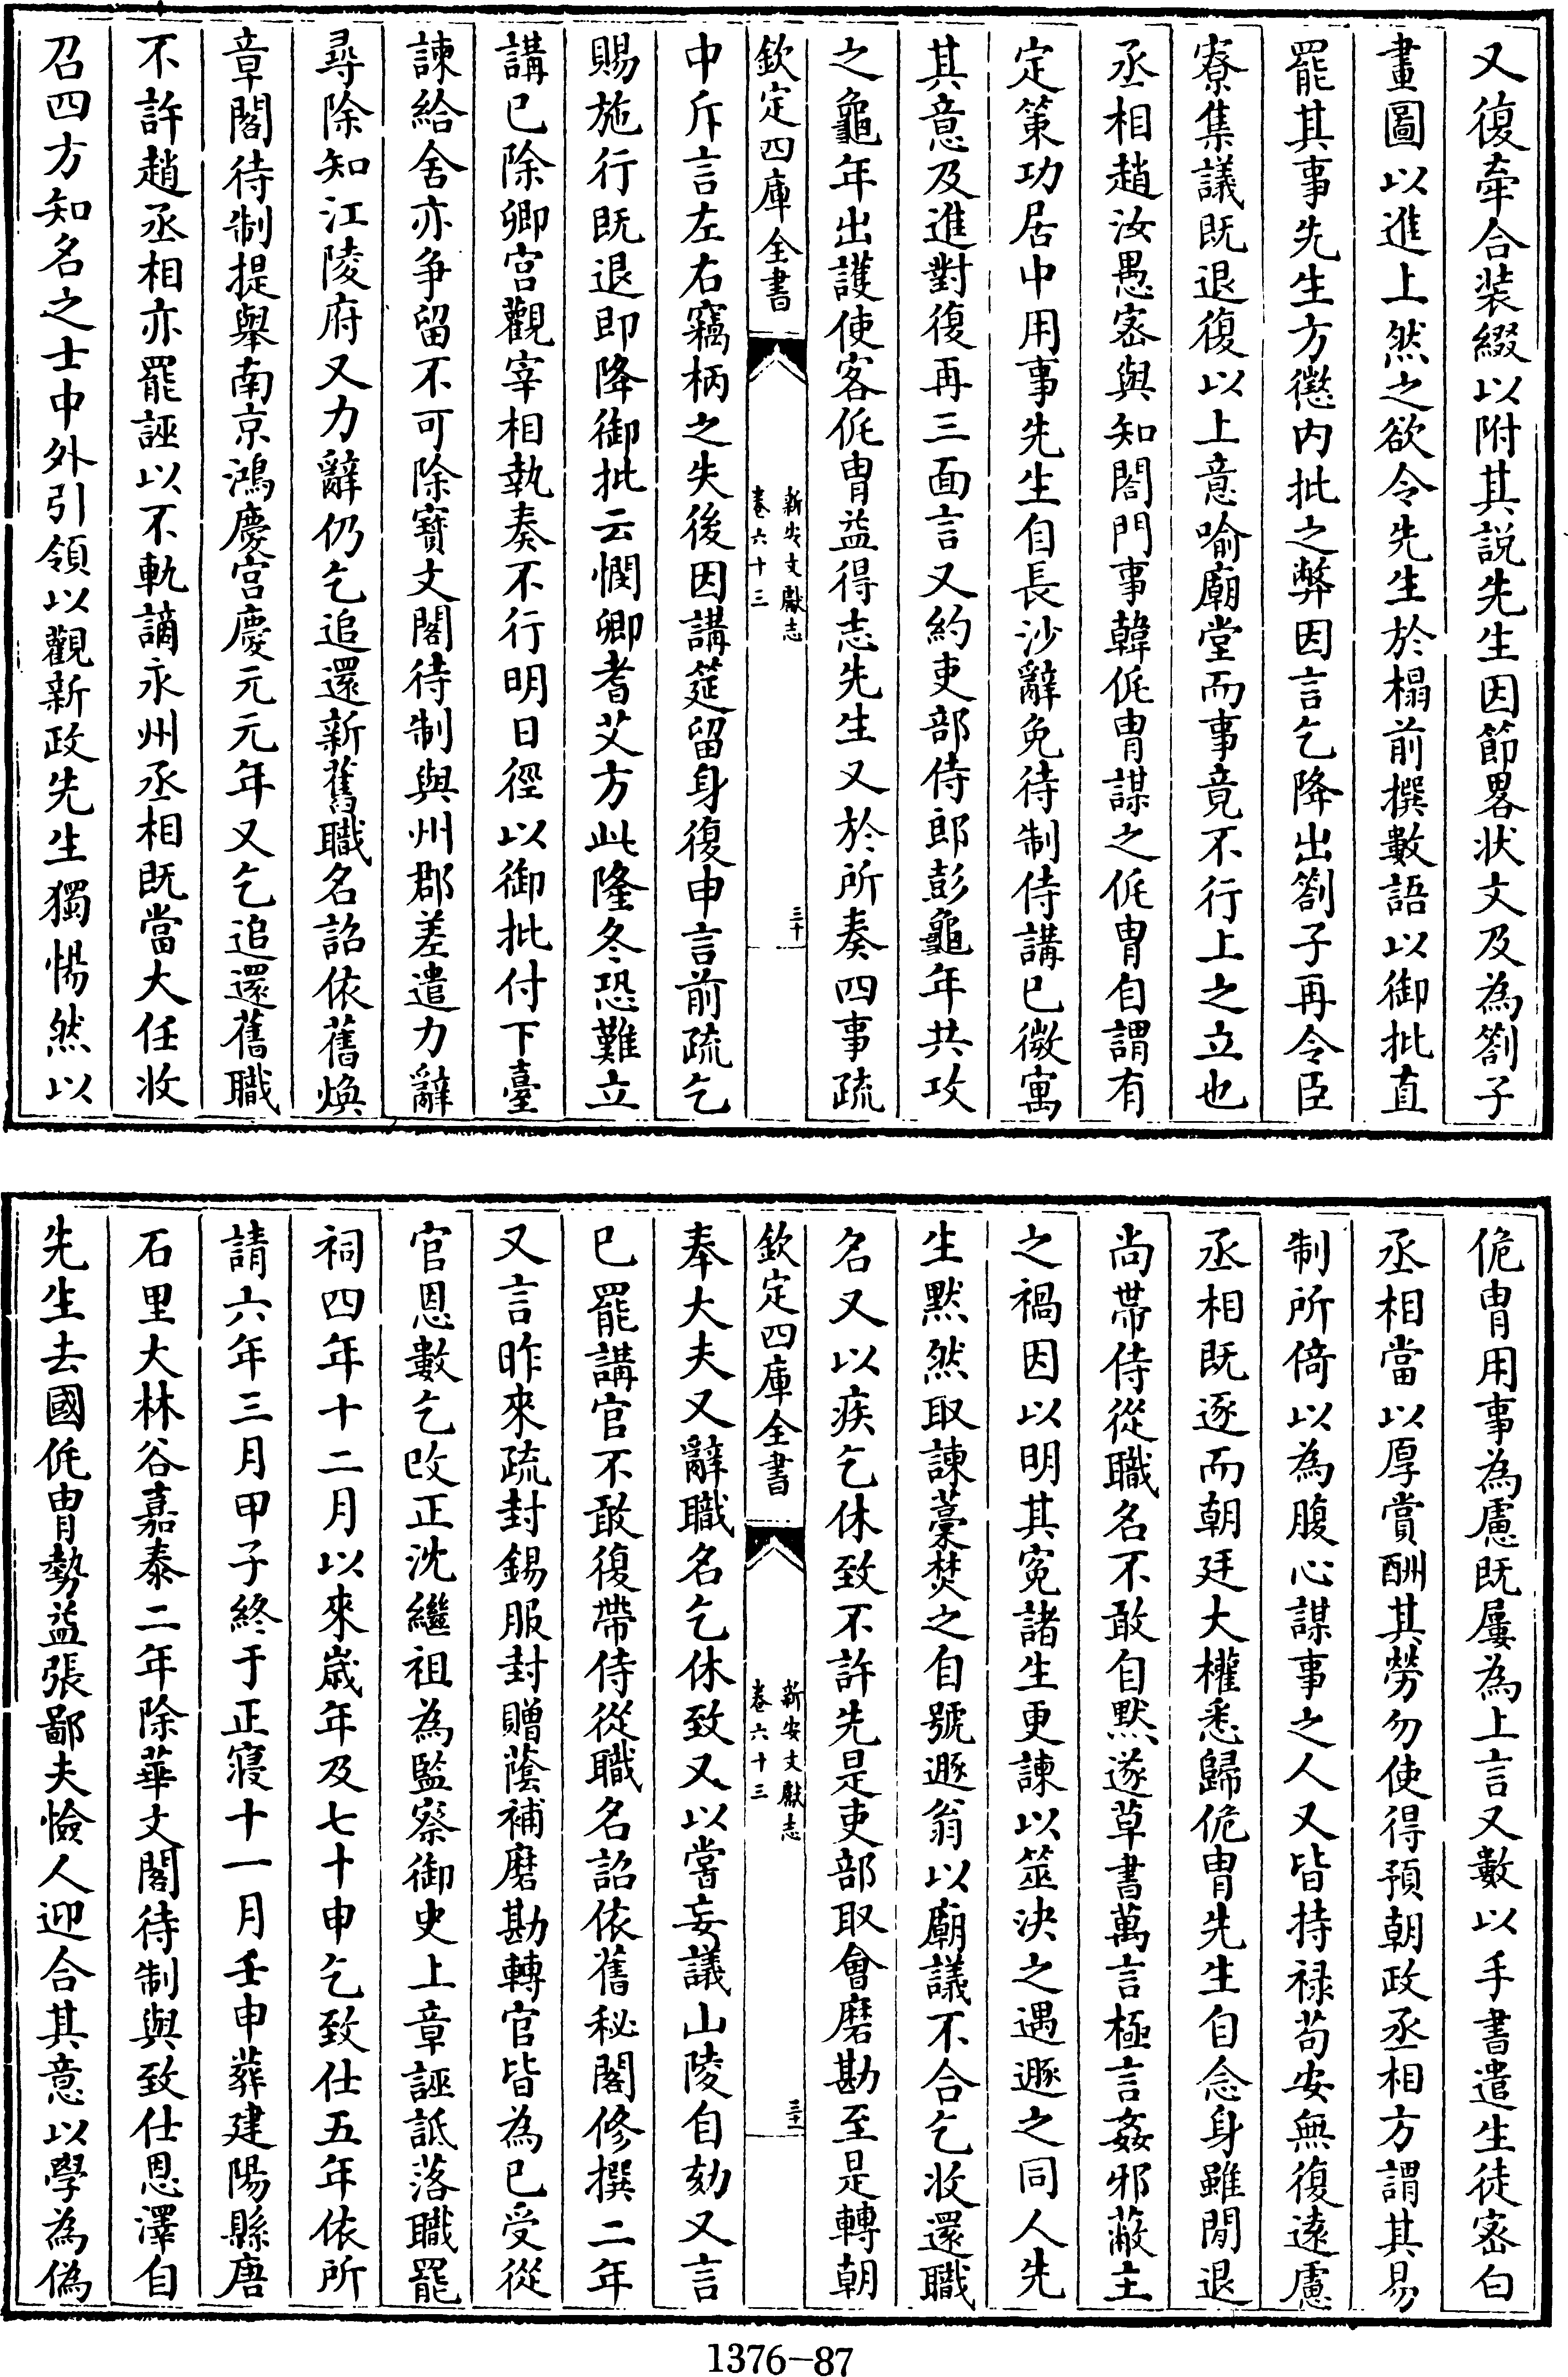 又復牽合装綴以附其説先生因節畧状文及為劄子
畫圖以進上然之欲令先生於榻前撰數語以御批直
罷其事先生方懲内批之弊因言乞降出劄子再令臣
寮集議既退復以上意喻廟堂而事竟不行上之立也
丞相趙汝愚宻與知閤門事韓侂胄謀之侂胄自謂有
定策功居中用事先生自長沙辭免待制侍講已微寓
其意及進對復再三面言又約吏部侍郎彭龜年共攻
之龜年出護使客侂胄益得志先生又於所奏四事疏
欽定四庫全書
新安文獻志
卷六十三
三十
中斥言左右竊柄之失後因講筵留身復申言前疏乞
賜施行既退即降御批云憫卿耆艾方此隆冬恐難立
講已除卿宫觀宰相執奏不行明日徑以御批付下臺
諫給舍亦争留不可除寳文閣待制與州郡差遣力辭
尋除知江陵府又力辭仍乞追還新舊職名詔依舊煥
章閣待制提舉南京鴻慶宫慶元元年又乞追還舊職
不許趙丞相亦罷誣以不軌謫永州丞相既當大任收
召四方知名之士中外引領以觀新政先生獨惕然以
侂胄用事為慮既屢為上言又數以手書遣生徒宻白
丞相當以厚賞酬其勞勿使得預朝政丞相方謂其易
制所倚以為腹心謀事之人又皆持禄苟安無復逺慮
丞相既逐而朝廷大權悉歸侂胄先生自念身雖閒退
尚帶侍從職名不敢自黙遂草書萬言極言姦邪蔽主
之禍因以明其寃諸生更諫以筮決之遇遯之同人先
生黙然取諫藁焚之自號遯翁以廟議不合乞收還職
名又以疾乞休致不許先是吏部取會磨勘至是轉朝
欽定四庫全書
新安文獻志
卷六十三
三十一
奉大夫又辭職名乞休致又以嘗妄議山陵自劾又言
已罷講官不敢復帶侍從職名詔依舊秘閣修撰二年
又言昨來疏封錫服封贈蔭補磨勘轉官皆為已受從
官恩數乞改正沈繼祖為監察御史上章誣詆落職罷
祠四年十二月以來嵗年及七十申乞致仕五年依所
請六年三月甲子終于正寢十一月壬申葬建陽縣唐
石里大林谷嘉泰二年除華文閣待制與致仕恩澤自
先生去國侂胄勢益張鄙夫憸人迎合其意以學為偽
1376-87